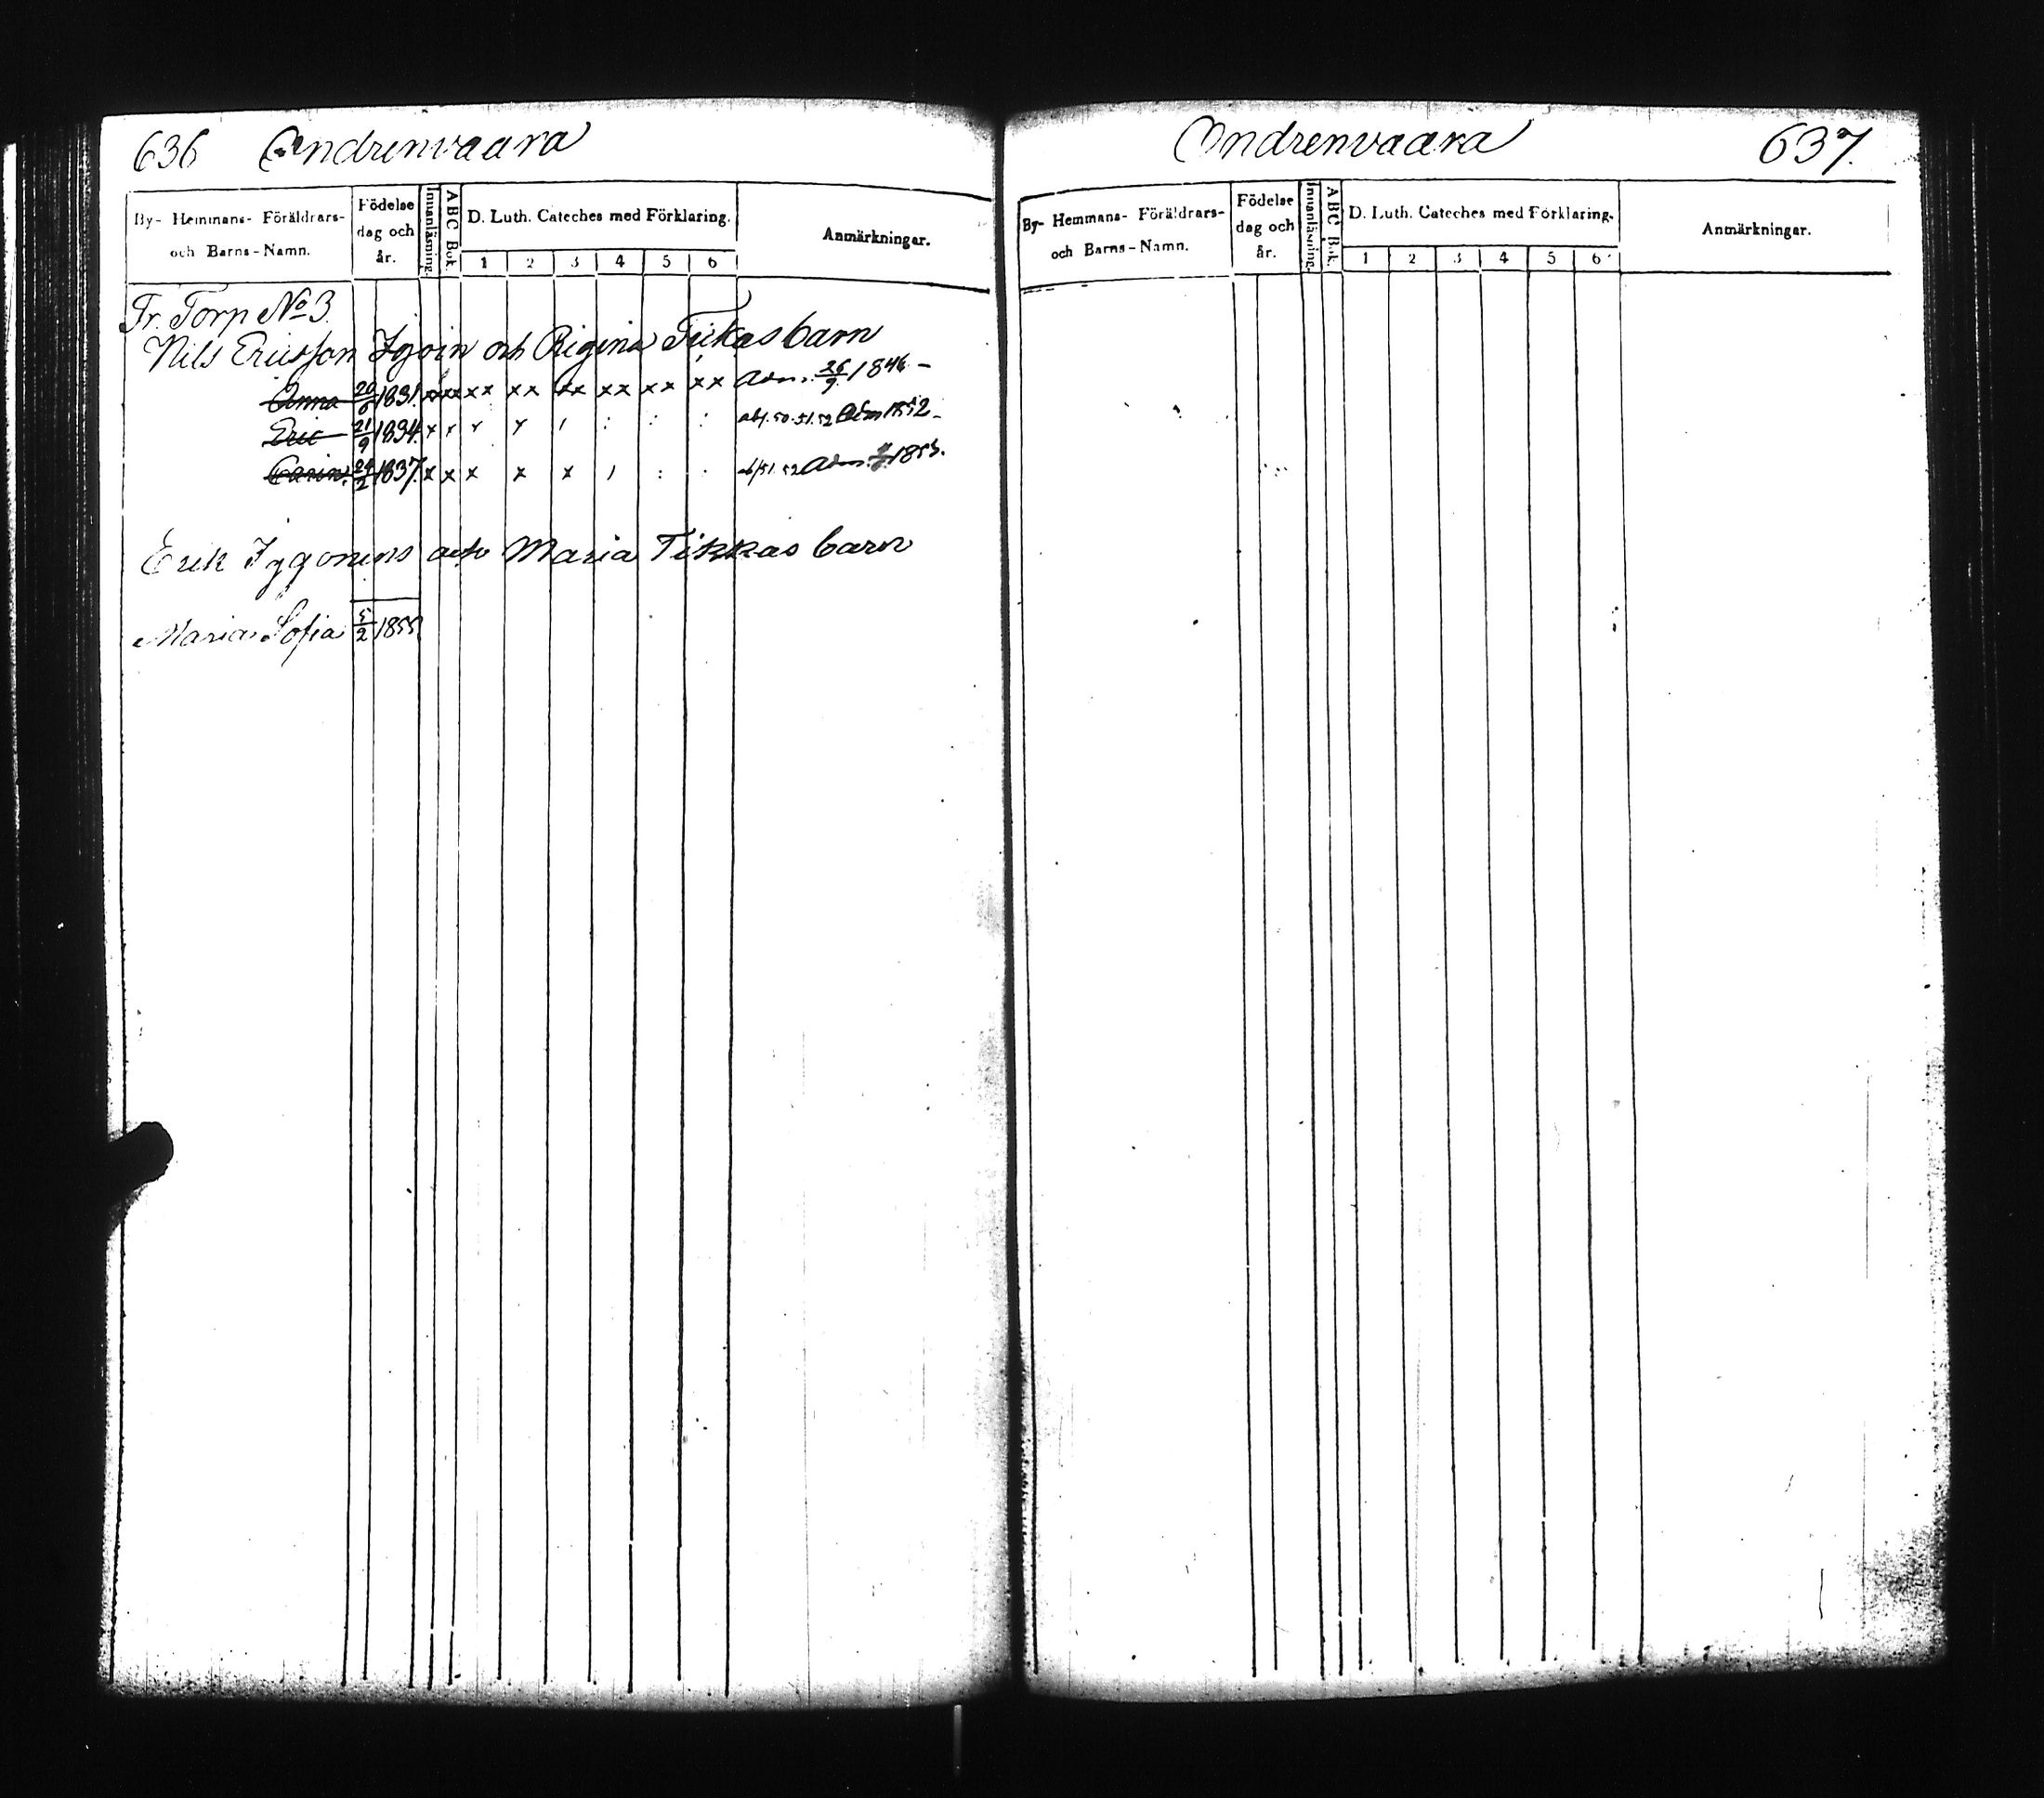 636 Ondrenvaara
By- Hemmans- Föräldrars-
och Barns-Namn.
Födelse
dag och
år.
Innanläsning.
ABC Bok.
D. Luth. Cateches med Förklaring.
1 2 3 4 5 6
Anmärkningar.
Fr. Torp No 3
Nils Ericsson Igoin och Regina Tikas barn
Anna 20/6 1831. xx xx xx xx xx xx xx xx Adm. 26/9 1846 -
Eric 21/9 1834. abs. 50. 51. 52 Adm 1852 -
Carin. 24/2 1837. x x x x x abs 51. 52 Adm. 1853.
Erik Iygonens och Maria Tikkas barn
Maria Sofia 5/2 1855
Ondrenvaara 637.
By- Hemmans- Föräldrars-
och Barns-Namn.
Födelse
dag och
år.
Innanläsning.
ABC Bok.
D. Luth. Cateches med Förklaring.
1 2 3 4 5 6
Anmärkningar.